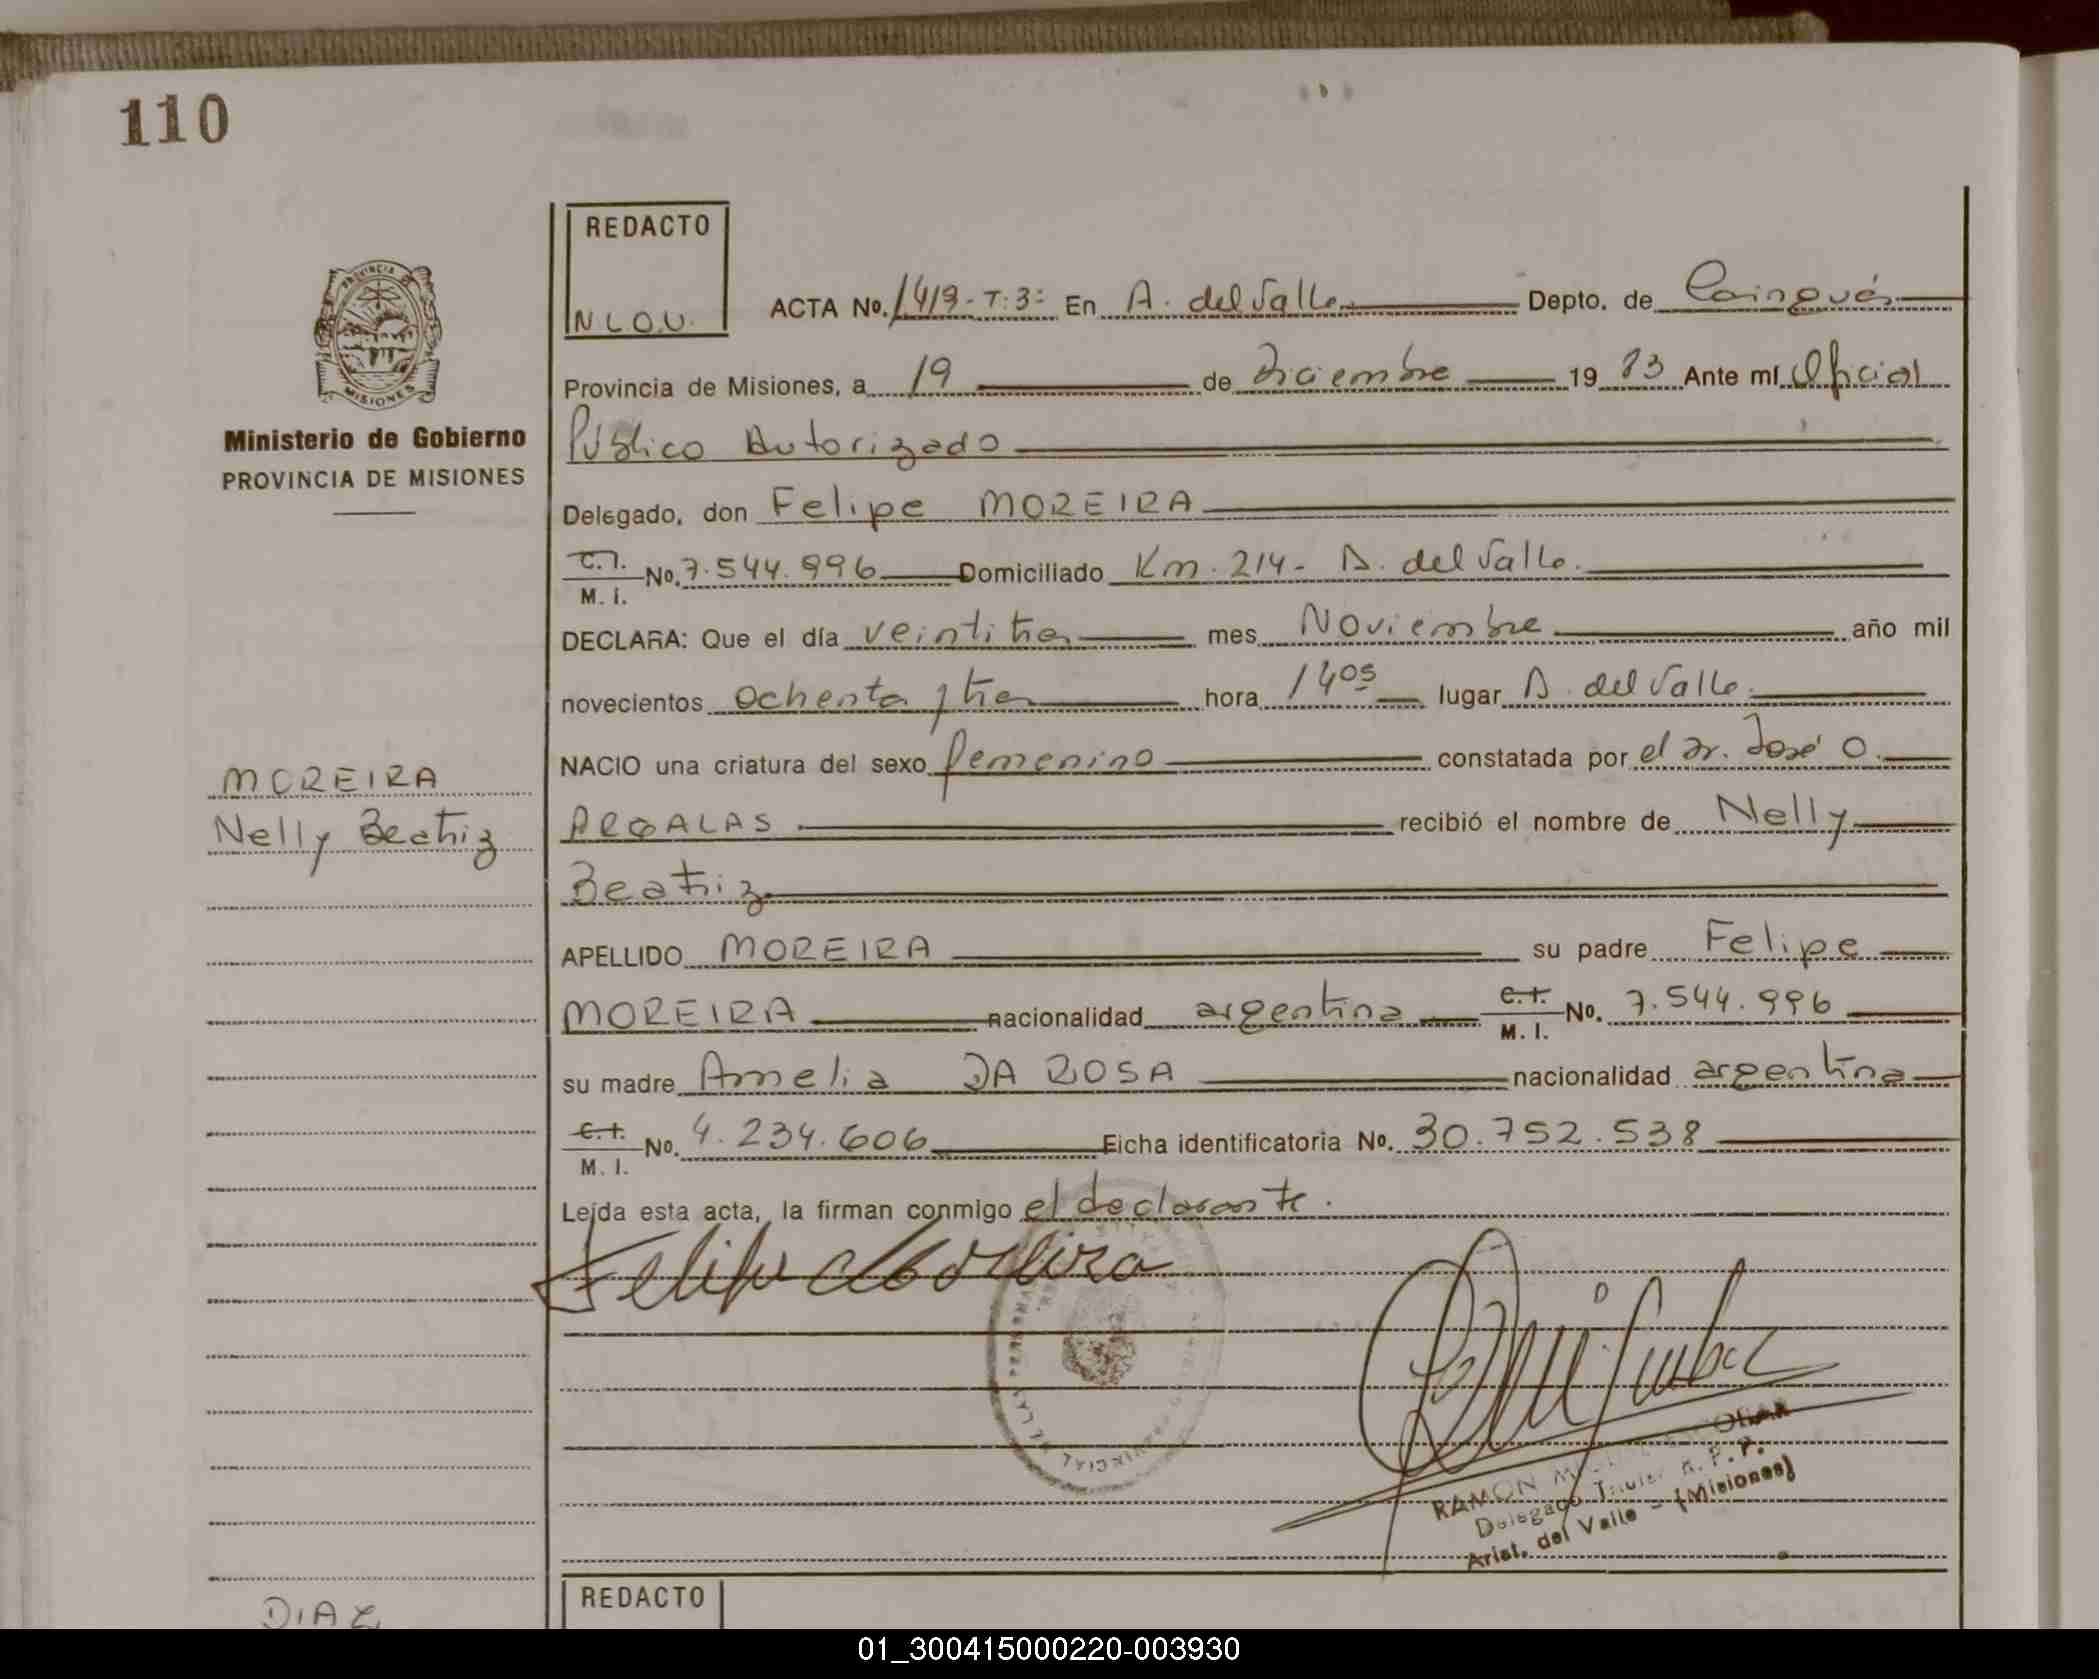 110
REDACTO
N L O U.
PROVINCIA DE
MISIONES
Ministerio de Gobierno
PROVINCIA DE MISIONES
ACTA No. 1419-T:3: En A. del Valle Depto. de Cainguás
Provincia de Misiones, a 19 de Diciembre 19 83 Ante mí Oficial
Público Autorizado
Delegado, don Felipe MOREIRA
C.I.
M. I. No. 7.544.996 Domiciliado Km. 214- A. del Valle.
DECLARA: Que el día veintitres mes Noviembre año mil
novecientos ochenta y tres hora 14os lugar A. del Valle.
NACIO una criatura del sexo femenino constatada por el Dr. José O.
MOREIRA
Nelly Beatriz
ARGALAS recibió el nombre de Nelly
Beatriz
APELLIDO MOREIRA su padre Felipe
MOREIRA nacionalidad argentina C.I. M. I. No. 7.544.996
su madre Amelia DA ROSA nacionalidad argentina
C.I. M. I. No. 4.234.606 Ficha identificatoria No. 30.752.538
Leída esta acta, la firman conmigo el declarante.
Felipe Moreira
RAMON
Delegado Titular R. P. P.
Arist. del Valle - (Misiones)
DIAZ
REDACTO
01_300415000220-003930